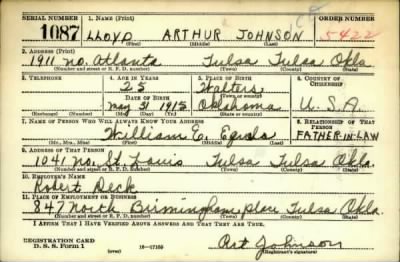 SERIAL NUMBER 1. NAME (Print) ORDER NUMBER
1087 LLOYD ARTHUR JOHNSON 5422
(First) (Middle) (Last)
2. ADDRESS (Print)
1911 No. Atlanta Tulsa Tulsa Okla
(Number and street or R. F. D. number) (Town) (County) (State)
3. TELEPHONE 4. AGE IN YEARS 5. PLACE OF BIRTH 6. COUNTRY OF CITIZENSHIP
25 Walters
DATE OF BIRTH (Town or county)
May 31 1915 Oklahoma U.S.A.
(Exchange) (Number) (Mo.) (Day) (Yr.) (State or country)
7. NAME OF PERSON WHO WILL ALWAYS KNOW YOUR ADDRESS 8. RELATIONSHIP OF THAT PERSON
William E. FATHER-IN-LAW
(Mr., Mrs., Miss) (First) (Middle) (Last)
9. ADDRESS OF THAT PERSON
1041 No. St. Louis Tulsa Tulsa Okla.
(Number and street or R. F. D. number) (Town) (County) (State)
10. EMPLOYER'S NAME
Robert Deck
11. PLACE OF EMPLOYMENT OR BUSINESS
847 North Birmingham place Tulsa Okla.
(Number and street or R. F. D. number) (Town) (County) (State)
I AFFIRM THAT I HAVE VERIFIED ABOVE ANSWERS AND THAT THEY ARE TRUE.
REGISTRATION CARD
D. S. S. Form 1 16-17105 Art Johnson
(Registrant's signature)